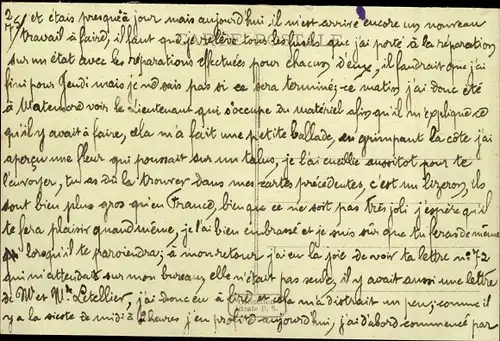 2/75/ et étais presqu'à jour mais aujourd'hui il m'est arrivé encore un nouveau
travail à faire, il faut que je relève tous les fusils que j'ai porté à la réparation
sur un état avec les réparations effectuées pour chacun d'eux, il faudrait que j'ai
fini pour Jeudi mais je ne sais pas si ce sera terminé; ce matin j'ai donc été
à voir le Lieutenant qui s'occupe du matériel afin qu'il m'explique ce
qu'il y avait à faire, cela m'a fait une petite ballade, en grimpant la côte j'ai
aperçu une fleur qui poussait sur un talus, je l'ai cueillie aussitot pour te
l'envoyer, tu as dû la trouver dans mes cartes précédentes, c'est un lizeron, ils
sont bien plus gros qu'en France, bien que ce ne soit pas très joli j'espère qu'il
te fera plaisir quand même, je l'ai bien embrassé et je suis sûr que tu feras de même
lorsqu'il te parviendra; à mon retour j'ai eu la joie de voir ta lettre n° 72
qui m'attendait sur mon bureau, elle n'était pas seule, il y avait aussi une lettre
de Mr et Mme Letellier, j'ai donc eu à lire et cela m'a distrait un peu; comme il
y a la sieste de midi à 2 heures j'en profite aujourd'hui, j'ai d'abord commencé par